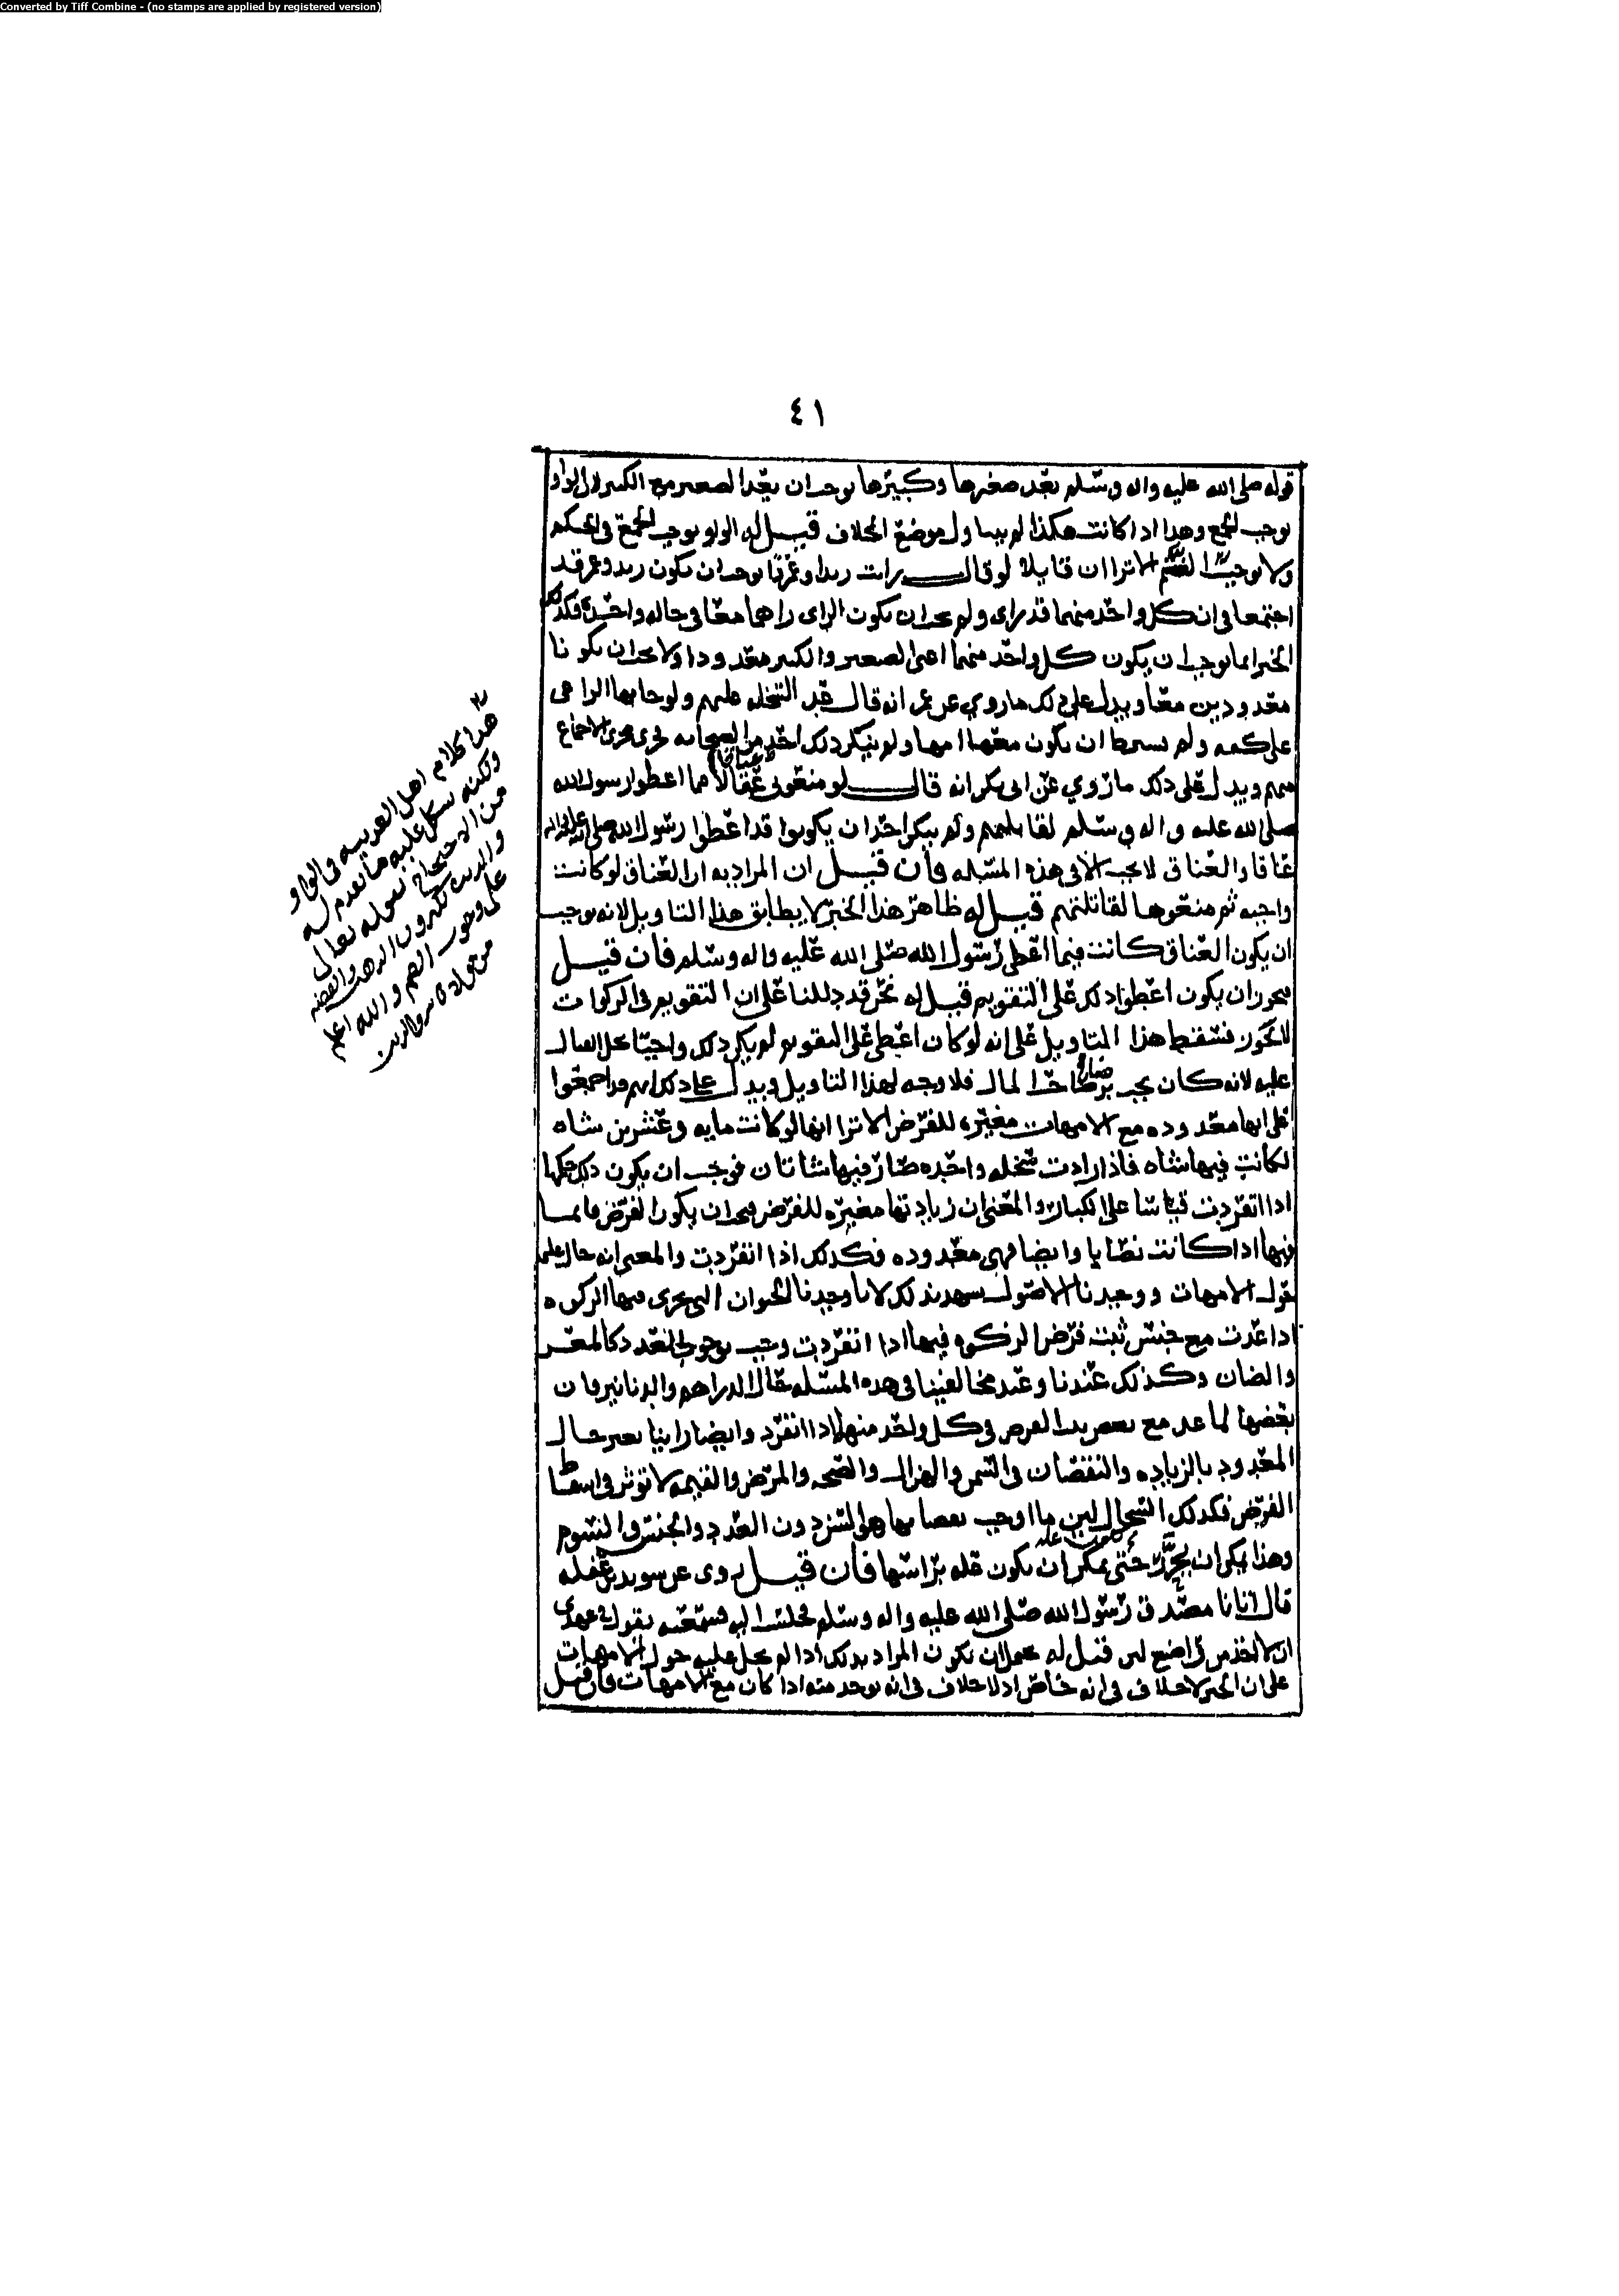 Converted by Tiff Combine - (no stamps are applied by registered version)
٤١
قوله صلى الله عليه واله وسلم نعد صغيرها وكبيرها يوجب ان يعد الصغير مع الكبير لان الواو
يوجب الجمع وهذا اذا كانت هكذا لم يتناول موضع الخلاف قيل له الواو يوجب الجمع في الحكم
ولا يوجب الاترا ان قايلا لو قال رايت زيدا وعمرا يوجب ان يكون زيد وعمر قد
اجتمعا في ان كل واحد منهما قد راى ولم يجب ان يكون الراى راهما معا في حاله واحده فكذلك
الخبر انما يوجب ان يكون كل واحد منهما اعني الصغير والكبير معدودا ولا يجب ان يكونا
معدودين معا ويدل على ذلك ما روي عن عمر انه قال عد السخله عليهم ولو جا بها الراعى
على كفه ولم يشرط ان يكون معها امها ولم ينكر ذلك احد من الصحابه فجرى مجرى الاجماع
منهم ويدل على ذلك ما روي عن ابى بكر انه قال لو منعوني عقالا عناقا مما اعطوا رسول الله
صلى الله عليه واله وسلم لقاتلتهم ولم ينكر احد ان يكونوا قد اعطوا رسول الله صلى الله عليه واله
عناقا والعناق لا يجب الا في هذه المسئله فان قيل ان المراد به ان العناق لو كانت
واجبه ثم منعوها لقاتلتهم قيل له ظاهر هذا الخبر لا يطابق هذا التاويل لانه يوجب
ان يكون العناق كانت فيما اعطى رسول الله صلى الله عليه واله وسلم فان قيل
فيجوز ان يكون اعطوا ذلك على التقويم قيل له نحن قد دللنا على ان التقويم في الزكوات
لا يجوز فسقط هذا التاويل على انه لو كان اعطى على التقويم لم يكن ذلك واجبا يحل القتال
عليه لانه كان يجب برضاء صاحب المال فلا وجه لهذا التاويل ويدل على ذلك انهم قد اجمعوا
على انها معدوده مع الامهات مغيره للفرض الا ترا انها لو كانت مايه وعشرين شاه
لكانت فيها شاه فاذا زادت سخله واحده صار فيها شاتان فوجب ان يكون ذلك حكمها
اذا انفردت قياسا على الكبار والمعنى ان زيادتها مغيره للفرض فيجب ان يكون الفرض قايما
فيها اذا كانت نصابا وايضا فهي معدوده فكذلك اذا انفردت والمعنى انه حال عليها
حول الامهات ووجدنا الاصول تشهد بذلك لانا وجدنا الحيوان التى يجرى فيها الزكوه
اذا عدت مع جنس ثبت فرض الزكوه فيها اذا انفردت وجب العدد كالمعز
والضان وكذلك عندنا وعند مخالفينا في هذه المسئله حال الدراهم والدنانير فان
بعضها لما عد مع بعض بدا الفرض في كل واحد منهما اذا انفرد وايضا راينا تغير حال
المعدود بالزياده والنقصان في السمن والهزال والصحه والمرض والقيمه لا تؤثر في اسقاط
الفرض فكذلك السخال لان ما اوجب نقصانها هو السن دون العدد والجنس والسوم
وهذا يمكن ان يحرر حتى يمكن ان يكون عله براسها فان قيل روى عن سويد بن غفله
قال اتانا مصدق رسول الله صلى الله عليه واله وسلم فجلست اليه فسمعته يقول في عهدي
ان لا اخذ من راضع لبن قيل له يحمل ان يكون المراد بذلك اذا لم يحل عليه حول الامهات
على ان الخبر لا خلاف في انه خاص اذ لا خلاف في انه يوخذ منه اذا كان مع الامهات فان قيل
هذا كلام اهل العربيه في الواو
ولكنه يشكل عليه ما تقدم له
من الاحتجاج بقوله تعالى
والذين يكنزون الذهب والفضه
على وجوب الضم والله اعلم